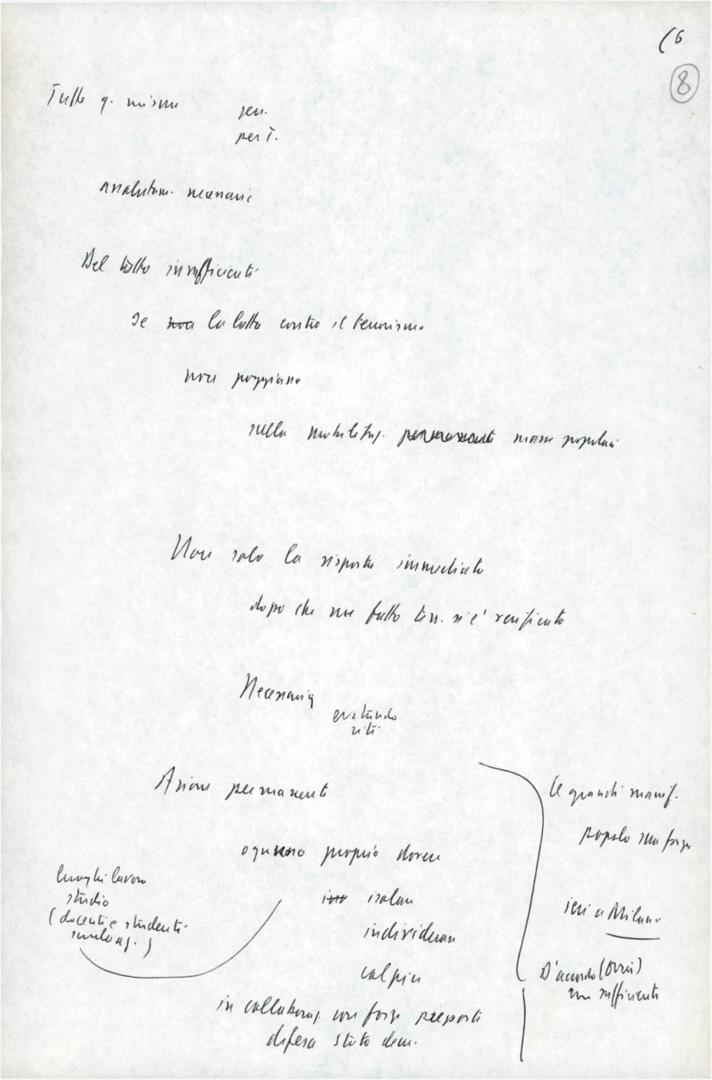 (6
8
Tutte q. misure
gen.
assolutam. necessarie
Del tutto insufficienti
se non la lotta contro il terrorismo
non poggiasse
sulla mobilitaz. permanente masse popolari
Non solo la risposta immediata
dopo che un fatto terr. si è verificato
Necessaria
evitando
riti
Azione permanente
ognuno proprio dovere
isolare
individuare
colpire
in collaboraz. con forze preposte
difesa stato dem.
luoghi lavoro
studio
(docenti e studenti
)
Le grandi manif.
popolo sua forza
ieri a Milano
D'accordo ( )
non sufficienti